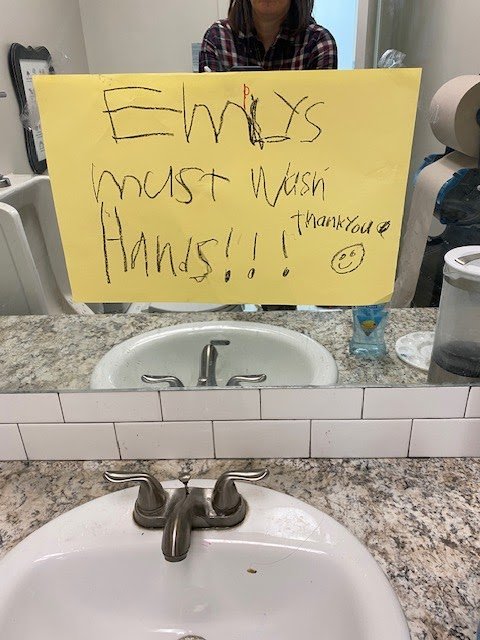 EmLys
must Wash
Hands!!!
thankyou